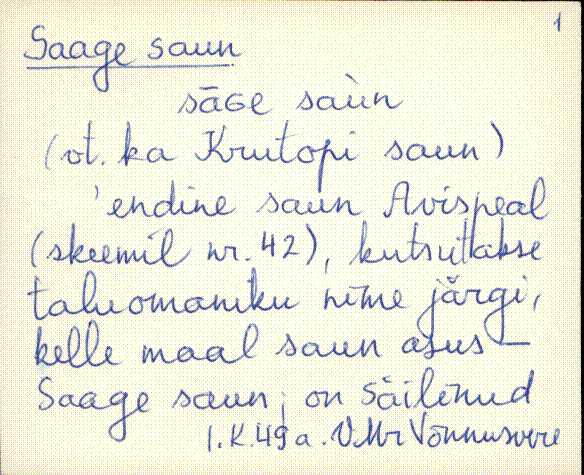 1
Saage saun
sāGe saùn
(vt. ka Krutopi saun)
'endine saun Avispeal
(skeemil nr. 42), kutsutakse
taluomaniku nime järgi,
kelle maal saun asus –
Saage saun; on säilinud
I.K. 49 a. V.Mr Võnnusvere